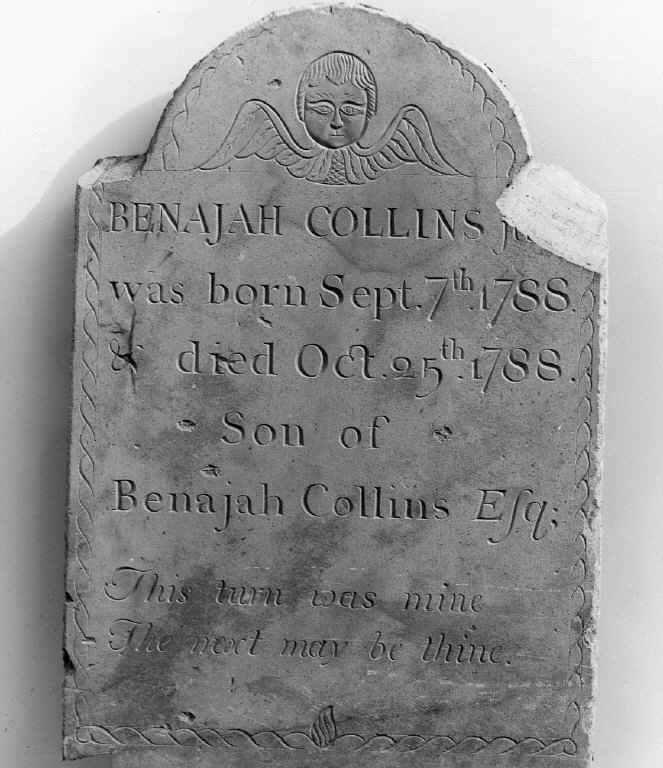 BENAJAH COLLINS
was born Sept. 7th. 1788.
& died Oct. 25th. 1788.
Son of
Benajah Collins Eſq;
This turn was mine
The next may be thine.